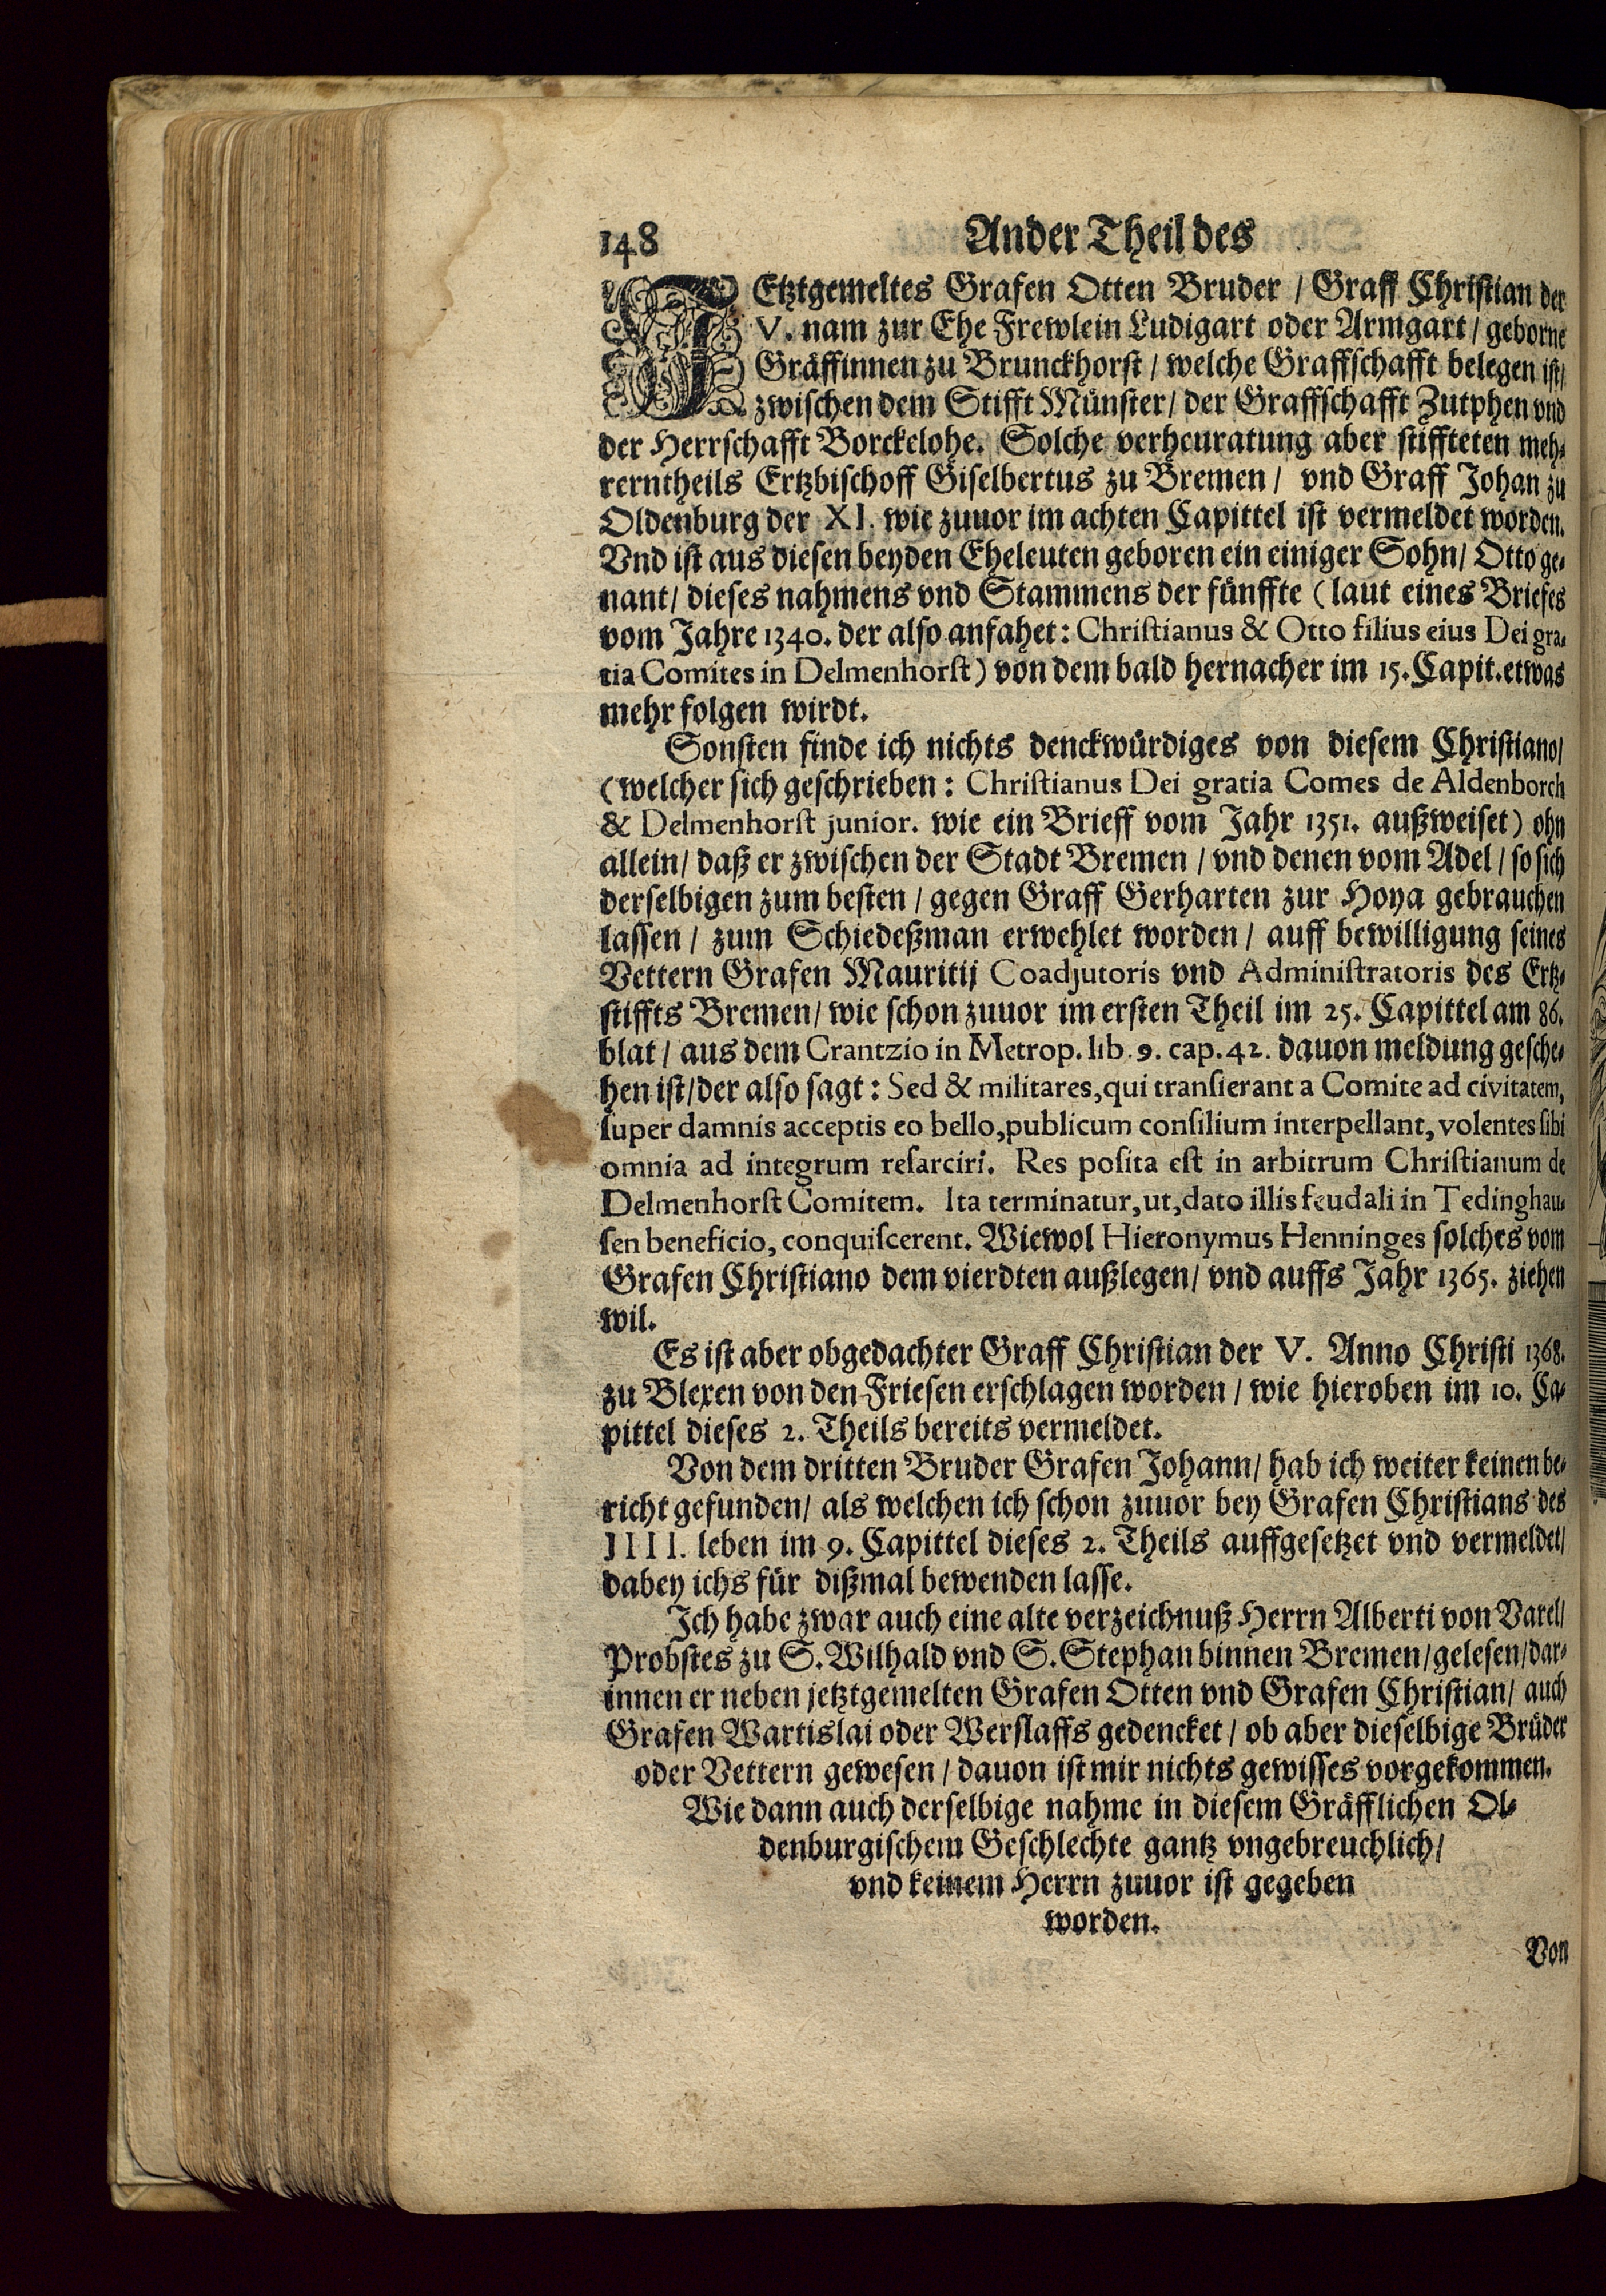 148 Ander Theil des
JEtztgemeltes Grafen Otten Bruder / Graff Christian der
V. nam zur Ehe Frewlein Ludigart oder Armgart / geborne
Gräffinnen zu Brunckhorst / welche Graffschafft belegen ist /
zwischen dem Stifft Münster / der Graffschafft Zutphen vnd
der Herrschafft Borckelohe. Solche verheuratung aber stiffteten meh-
rerntheils Ertzbischoff Giselbertus zu Bremen / vnd Graff Johan zu
Oldenburg der XI. wie zuuor im achten Capittel ist vermeldet worden.
Vnd ist aus diesen beyden Eheleuten geboren ein einiger Sohn / Otto ge-
nant / dieses nahmens vnd Stammens der fünffte (laut eines Briefes
vom Jahre 1340. der also anfahet: Christianus & Otto filius eius Dei gra-
tia Comites in Delmenhorst) von dem bald hernacher im 15. Capit. etwas
mehr folgen wirdt.
Sonsten finde ich nichts denckwürdiges von diesem Christiano /
(welcher sich geschrieben: Christianus Dei gratia Comes de Aldenborch
& Delmenhorst junior. wie ein Brieff vom Jahr 1351. außweiset) ohn
allein / daß er zwischen der Stadt Bremen / vnd denen vom Adel / so sich
derselbigen zum besten / gegen Graff Gerharten zur Hoya gebrauchen
lassen / zum Schiedeßman erwehlet worden / auff bewilligung seines
Vettern Grafen Mauritij Coadjutoris vnd Administratoris des Ertz-
stiffts Bremen / wie schon zuuor im ersten Theil im 25. Capittel am 86.
blat / aus dem Crantzio in Metrop. lib. 9. cap. 42. dauon meldung gesche-
hen ist / der also sagt: Sed & militares, qui transierant a Comite ad civitatem,
super damnis acceptis eo bello, publicum consilium interpellant, volentes sibi
omnia ad integrum resarciri. Res posita est in arbitrum Christianum de
Delmenhorst Comitem. Ita terminatur, ut, dato illis feudali in Tedinghau-
sen beneficio, conquiscerent. Wiewol Hieronymus Henninges solches vom
Grafen Christiano dem vierdten außlegen / vnd auffs Jahr 1365. ziehen
wil.
Es ist aber obgedachter Graff Christian der V. Anno Christi 1368.
zu Blexen von den Friesen erschlagen worden / wie hieroben im 10. Ca-
pittel dieses 2. Theils bereits vermeldet.
Von dem dritten Bruder Grafen Johann / hab ich weiter keinen be-
richt gefunden / als welchen ich schon zuuor bey Grafen Christians des
IIII. leben im 9. Capittel dieses 2. Theils auffgesetzet vnd vermeldet /
dabey ichs für dißmal bewenden lasse.
Ich habe zwar auch eine alte verzeichnuß Herrn Alberti von Varel /
Probstes zu S. Wilhald vnd S. Stephan binnen Bremen / gelesen / dar-
innen er neben jetztgemelten Grafen Otten vnd Grafen Christian / auch
Grafen Wartislai oder Werslaffs gedencket / ob aber dieselbige Brüder
oder Vettern gewesen / dauon ist mir nichts gewisses vorgekommen.
Wie dann auch derselbige nahme in diesem Gräfflichen Ol-
denburgischem Geschlechte gantz vngebreuchlich /
vnd keinem Herrn zuuor ist gegeben
worden.
Von